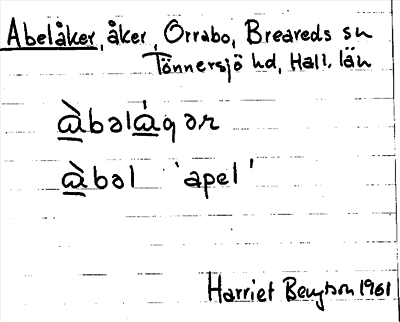 Abelåker, åker, Orrabo, Breareds sn
Tönnersjö hd, Hall. län
àbəlágər
àbəl 'apel'
Harriet Bengtson 1961